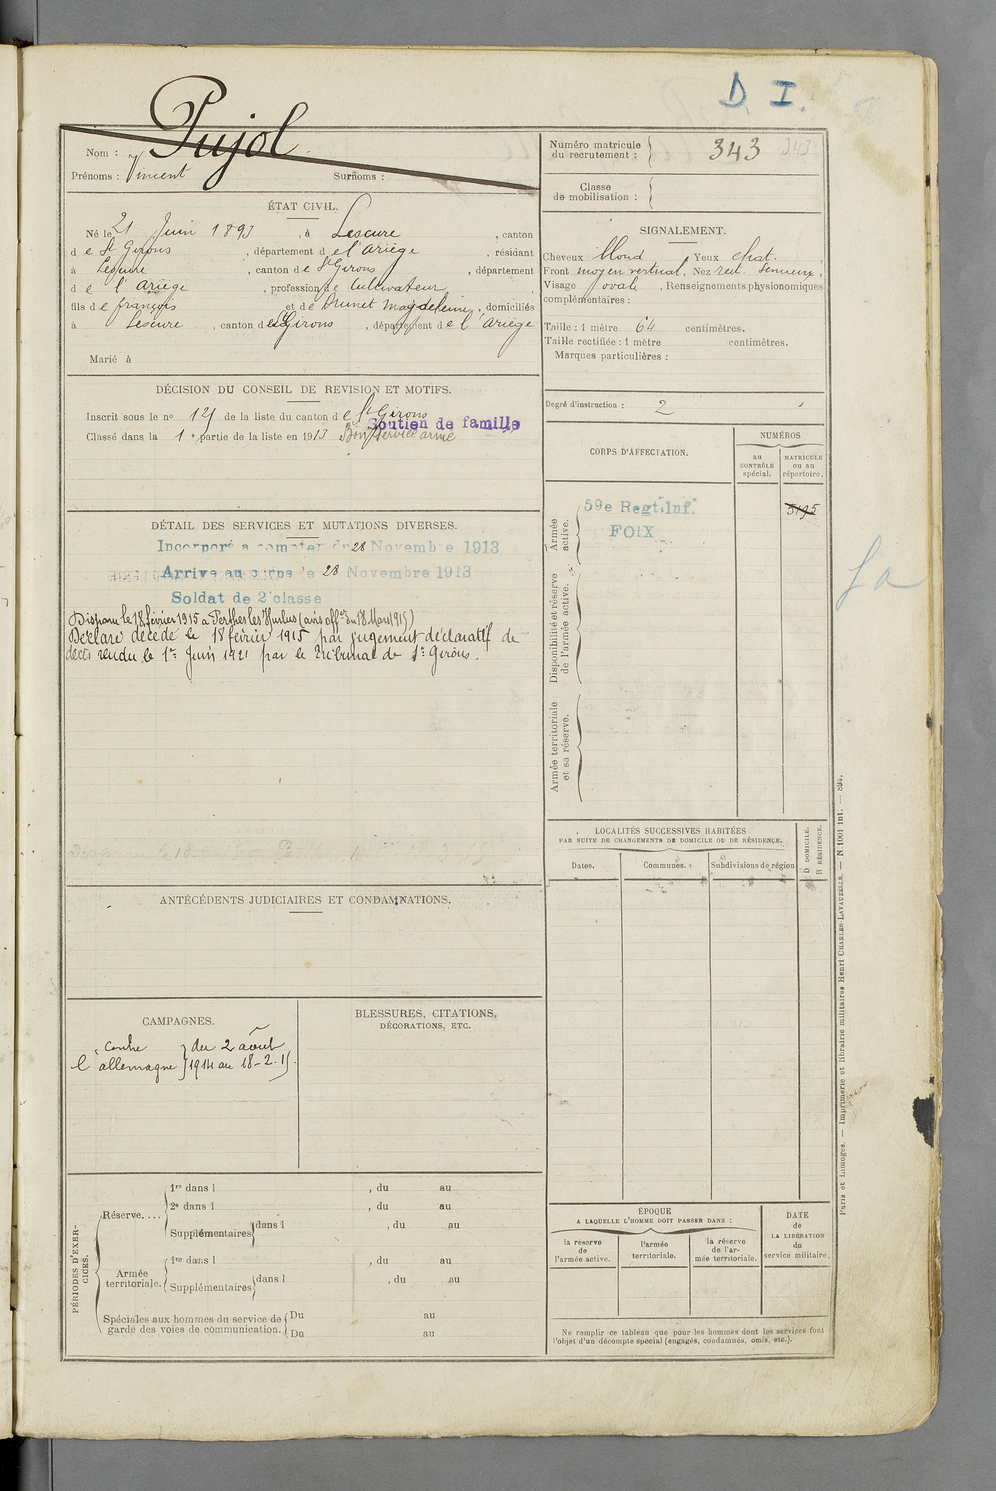 D I.
Pujol
Nom :
Prénoms : Vincent Surnoms :
Numéro matricule du recrutement : 343
Classe de mobilisation :
ÉTAT CIVIL.
Né le 21 Juin 1893, à Lescure, canton
d e St Girons, département d e l'Ariège, résidant
à Lescure, canton d e St Girons, département
d e l'Ariège, profession d e Cultivateur
fils d e françois et d e Brunet Magdeleine, domiciliés
à Lescure, canton d e St Girons, département d e l'Ariège
Marié à
SIGNALEMENT.
Cheveux blond Yeux chat.
Front moyen vertical, Nez rect.
Visage ovale, Renseignements physionomiques
complémentaires :
Taille : 1 mètre 64 centimètres.
Taille rectifiée : 1 mètre centimètres.
Marques particulières :
Degré d'instruction : 2
DÉCISION DU CONSEIL DE REVISION ET MOTIFS.
Inscrit sous le no 121 de la liste du canton d e St Girons
Soutien de famille
Classé dans la 1e partie de la liste en 1913 Bon service armé
DÉTAIL DES SERVICES ET MUTATIONS DIVERSES.
Incorporé a compter du 28 Novembre 1913
Arrive au corps le 28 Novembre 1913
Soldat de 2e classe
Disparu le 18 février 1915 à Perthes les Hurlus (avis offel du 18 Mars 1915)
Déclaré décédé le 18 février 1915 par jugement déclaratif de
décès rendu le 1er Juin 1921 par le Tribunal de St Girons.
CORPS D'AFFECTATION.
NUMÉROS
au CONTRÔLE spécial.
MATRICULE ou au répertoire.
Armée active.
59e Regt. Inf.
FOIX
5195
Disponibilité et réserve de l'armée active.
Armée territoriale et sa réserve.
LOCALITÉS SUCCESSIVES HABITÉES
PAR SUITE DE CHANGEMENTS DE DOMICILE OU DE RÉSIDENCE.
Dates. Communes. Subdivisions de région
D DOMICILE.
R RÉSIDENCE.
ANTÉCÉDENTS JUDICIAIRES ET CONDAMNATIONS.
CAMPAGNES.
contre l'allemagne } du 2 août
1914 au 18-2-15.
BLESSURES, CITATIONS,
DÉCORATIONS, ETC.
PÉRIODES D'EXERCICES.
Réserve....
1re dans l , du au
2e dans l , du au
Supplémentaires dans l , du au
Armée territoriale.
1re dans l , du au
Supplémentaires dans l , du au
Spéciales aux hommes du service de
garde des voies de communication.
Du au
Du au
ÉPOQUE
A LAQUELLE L'HOMME DOIT PASSER DANS :
la réserve de l'armée active.
l'armée territoriale.
la réserve de l'armée territoriale.
DATE
de
LA LIBÉRATION
du
service militaire.
Ne remplir ce tableau que pour les hommes dont les services font
l'objet d'un décompte spécial (engagés, condamnés, omis, etc.).
Paris et Limoges. — Imprimerie et librairie militaires Henri CHARLES-LAVAUZELLE. — N. 1001 int. — 894.